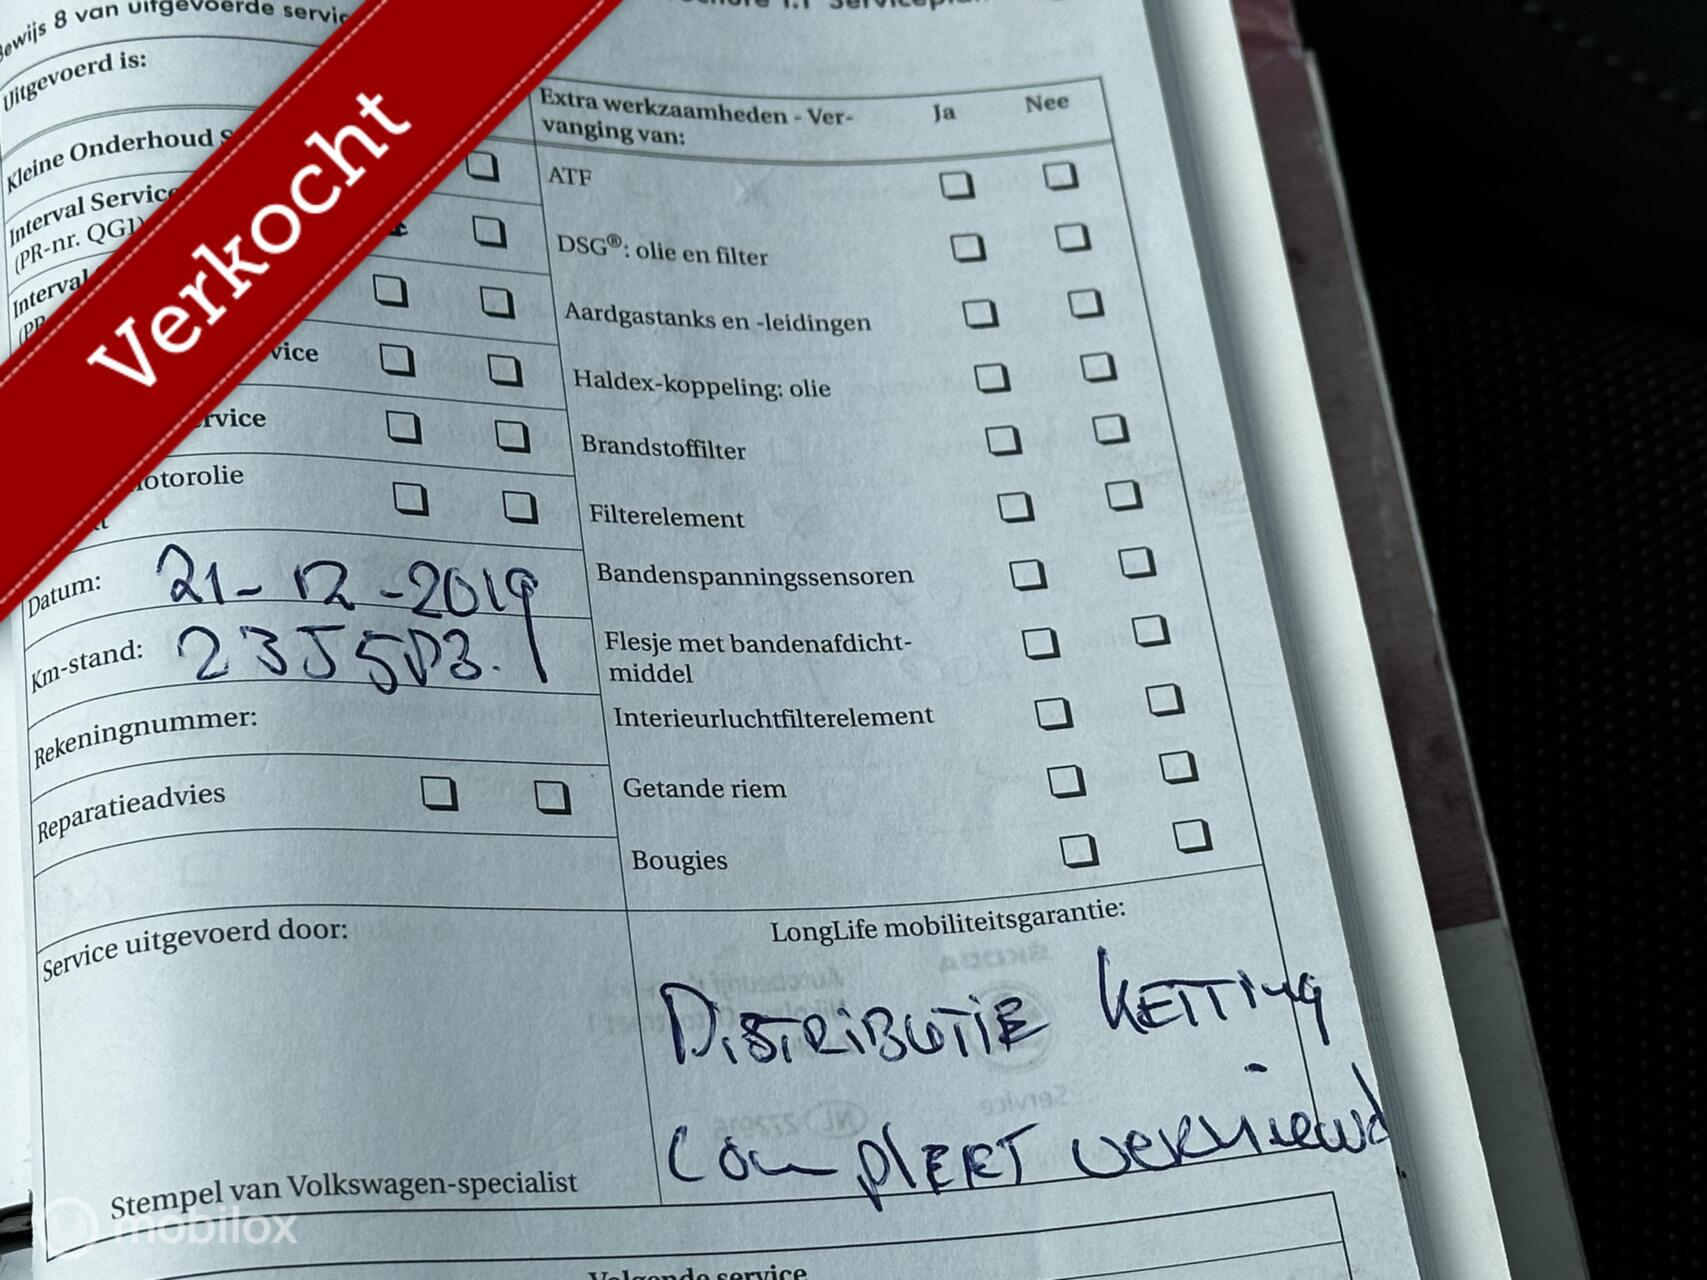 8 van uitgevoerde
Uitgevoerd is:
Kleine Onderhoud
Interval Service
(PR-nr. QG1)
Interval
vice
rvice
otorolie
Datum: 21-12-2019
Km-stand: 235503.
Rekeningnummer:
Reparatieadvies
Service uitgevoerd door:
Stempel van Volkswagen-specialist
Extra werkzaamheden - Ver-
vanging van:
Ja Nee
ATF
DSG®: olie en filter
Aardgastanks en -leidingen
Haldex-koppeling: olie
Brandstoffilter
Filterelement
Bandenspanningssensoren
Flesje met bandenafdicht-
middel
Interieurluchtfilterelement
Getande riem
Bougies
LongLife mobiliteitsgarantie:
DISTRIBUTIE KETTING
COMPLEET VERNIEWD
Volgende service
Verkocht
mobilox